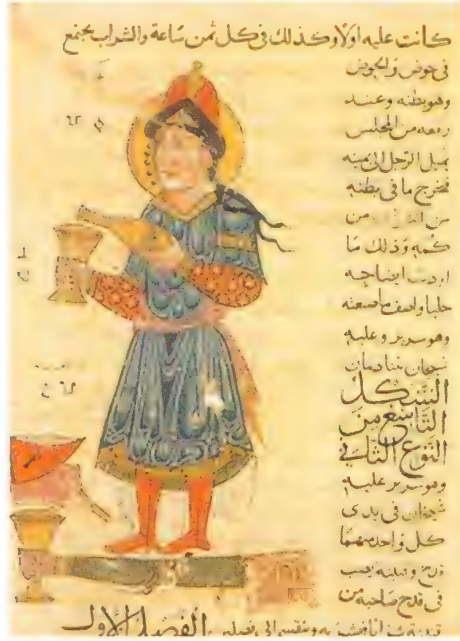 كانت عليه اولا وكذلك فى كل ثمن ساعة والشراب يجتمع
فى حوض والحوض
وهو بطنه وعند
رفعه من المجلس
يميل الرجل الى يمينه
فيخرج ما فى بطنه
من من
كمه وذلك ما
اردت ايضاحه
جليا واصف ما صنعته
وهو سرير وعليه
شيخان متنادمان
الشكل
التاسع من
النوع الثانى
وهو سرير عليه
شيخان فى يدى
كل واحد منهما
قدح وقنينة يصب
فى قدح صاحبه من
وينقسم الى فصلين الفصل الاول